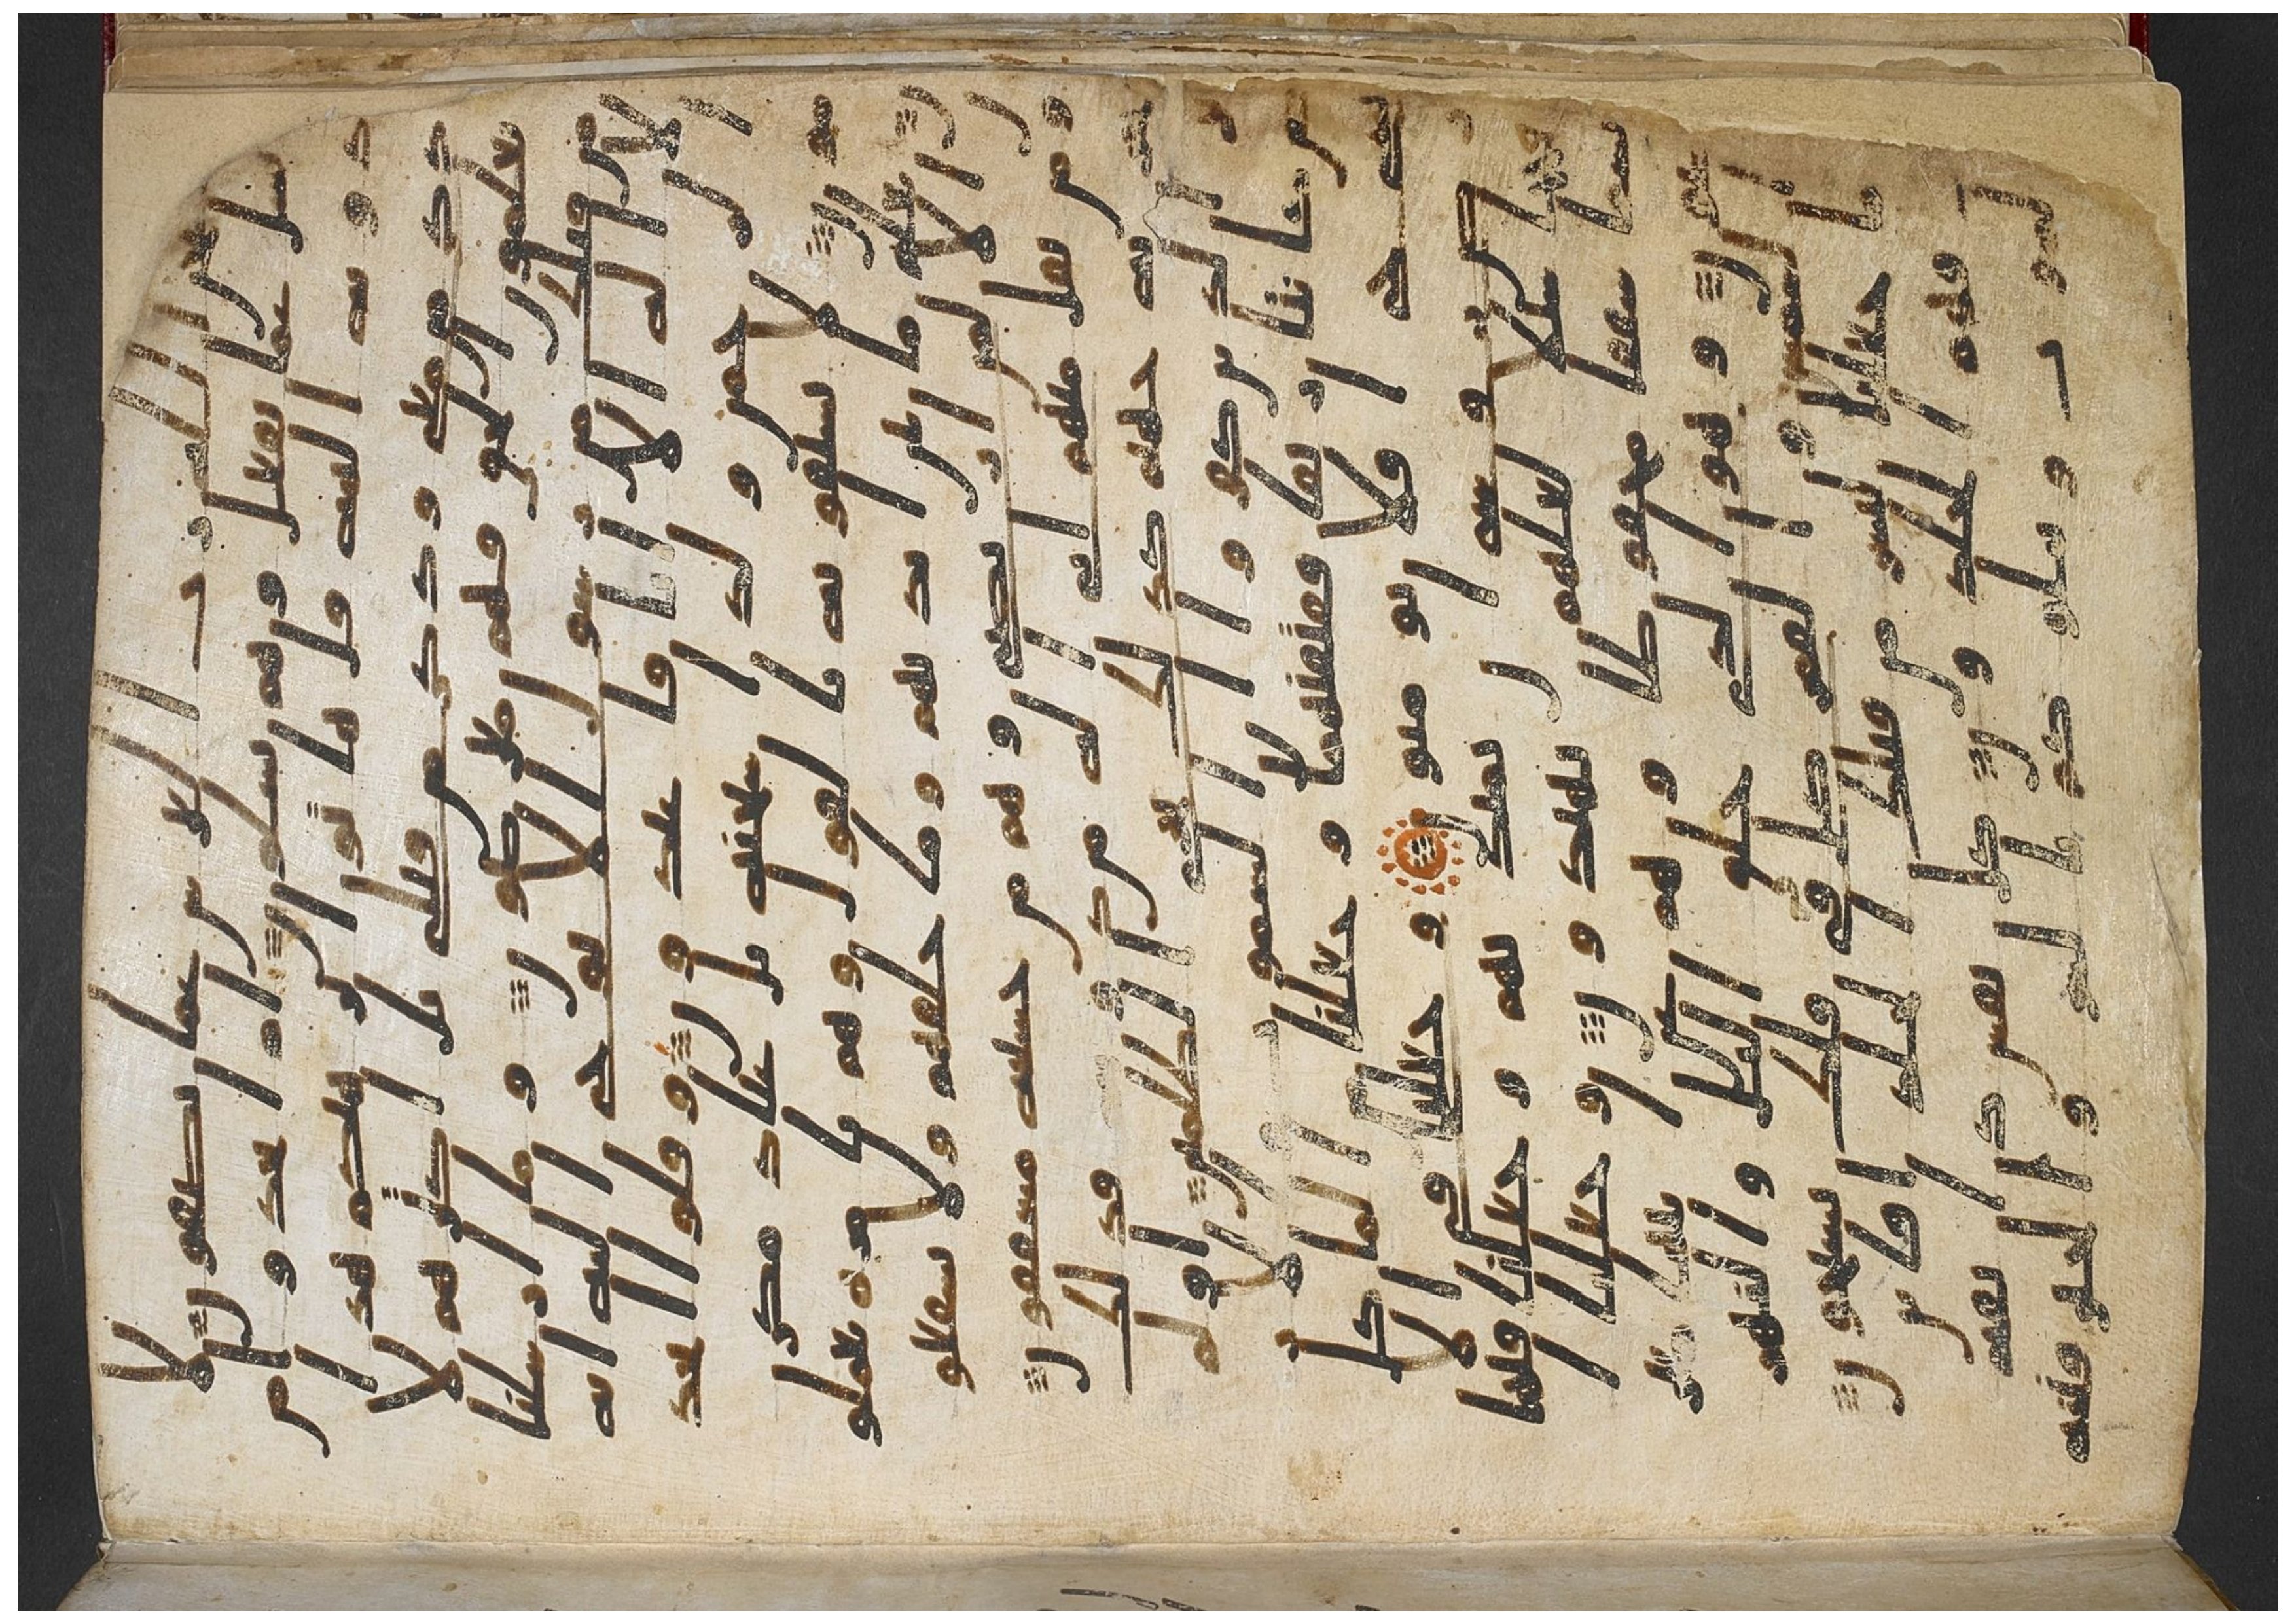 لله رب العرش عما يصفون لا
يسل عما يفعل وهم يسلون ام اتخذوا من
دونه الهه قل هاتوا برهنكم هذا
ذكر من معي وذكر من قبلي بل اكثرهم لا
يعلمون الحق فهم معرضون وما ارسلنا
من قبلك من رسول الا نوحي اليه انه
لا اله الا انا فاعبدون وقلوا اتخذ
الرحمن ولدا سبحنه بل عبد مكر
مون لا يسبقونه بالقول وهم بامره يعملو
ن يعلم ما بين ايديهم وما خلفهم ولا يشفعو
ن الا لمن ارتضى وهم من خشيته مشفقون
ومن يقل منهم اني اله من دونه فذلك
نجزيه جهنم كذلك نجزي الظلمين اولم
ير الذين كفروا ان السموت والا
رض كانتا رتقا ففتقنهما وجعلنا من الما كل
شي حي افلا يومنون وجعلنا في الا
رض روسي ان تميد بهم وجعلنا فيها
فجاجا سبلا لعلهم يهتدون وجعلنا ا
لسما سقفا محفوظا وهم عن ايتها معر
ضون وهو الذي خلق اليل والنهر
والشمس والقمر كل في فلك يسبحون
وما جعلنا لبشر من قبلك الخلد افاين
مت فهم الخلدون كل نفس ذيقه
الموت ونبلوكم بالشر والخير فتنه